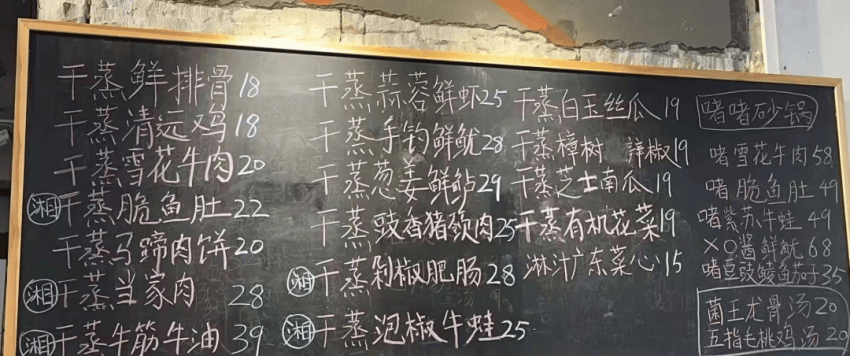 干蒸鲜排骨18
干蒸清远鸡18
干蒸雪花牛肉20
湘 干蒸脆鱼肚22
干蒸马蹄肉饼20
湘 干蒸当家肉 28
湘 干蒸牛筋牛油39
干蒸蒜蓉鲜虾25
干蒸手钓鲜鱿28
干蒸葱姜鲜鲈29
干蒸豉香猪颈肉25
湘 干蒸剁椒肥肠28
湘 干蒸泡椒牛蛙25
干蒸白玉丝瓜19
干蒸樟树 辣椒19
干蒸芝士南瓜19
干蒸有机花菜19
淋汁广东菜心15
啫啫砂锅
啫雪花牛肉58
啫脆鱼肚49
啫紫苏牛蛙49
XO酱鲜鱿68
啫豆豉鲮鱼茄子35
菌王龙骨汤20
五指毛桃鸡汤20